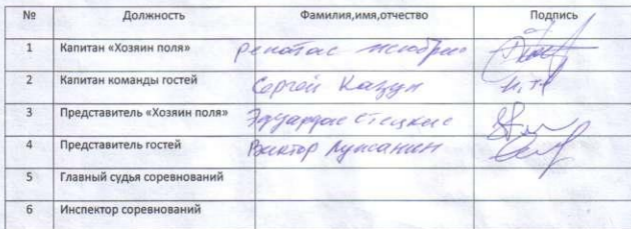 № Должность Фамилия,имя,отчество Подпись
1 Капитан «Хозяин поля» Ренатас
2 Капитан команды гостей Сергей Кацун
3 Представитель «Хозяин поля» Эдуардас Стецкис
4 Представитель гостей Виктор Лужанин
5 Главный судья соревнований
6 Инспектор соревнований